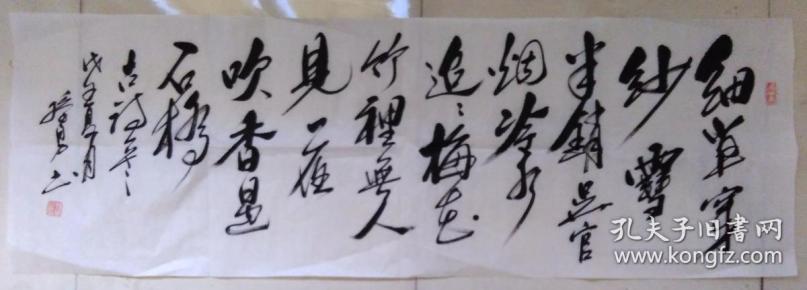 細草穿
沙雪
半銷吴宫
烟冷水
迢〻梅花
竹裡無人
見一夜
吹香過
石橋
古詩一首
夏月
书
孔夫子旧书网
www.kongfz.com